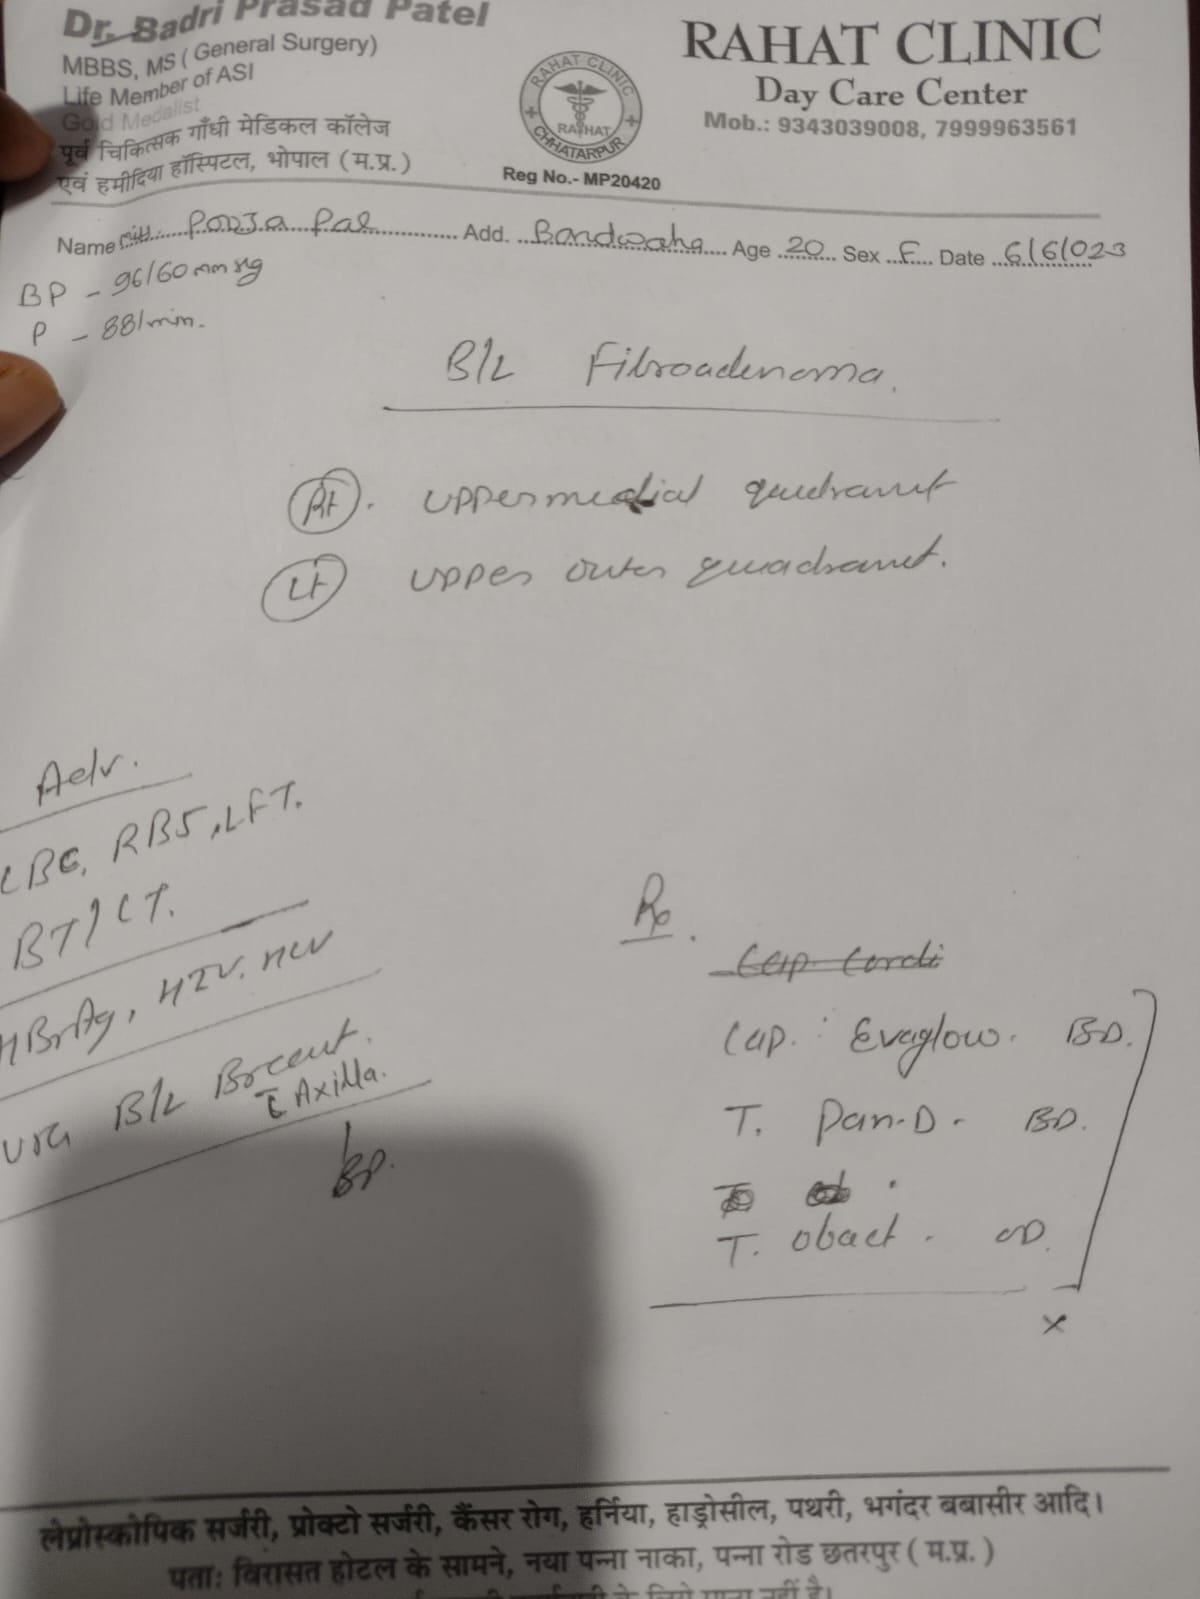 Dr. Badri Prasad Patel
MBBS, MS ( General Surgery)
Life Member of ASI
Gold Medalist
पूर्व चिकित्सक गाँधी मेडिकल कॉलेज
एवं हमीदिया हॉस्पिटल, भोपाल (म.प्र.)
RAHAT CLINIC
CHHATARPUR
RAHAT
Reg No.- MP20420
RAHAT CLINIC
Day Care Center
Mob.: 9343039008, 7999963561
Name Miss. Pooja Pal Add. Bandwaha Age 20 Sex F Date 6/6/023
BP - 96/60 mm Hg
P - 88/min.
B/L Fibroadenoma.
Rt. Upper medial quadrant
Lt Upper outer quadrant.
Adv.
CBC, RBS, LFT.
BT/CT.
HBsAg, HIV, HCV
USG B/L Breast.
c̄ Axilla.
BP.
Rx.
Cap Cordi
Cap. Evaglow. BD.
T. Pan-D - BD.
T. obact - OD.
x
लेप्रोस्कोपिक सर्जरी, प्रोक्टो सर्जरी, कैंसर रोग, हर्निया, हाड्रोसील, पथरी, भगंदर बबासीर आदि।
पताः विरासत होटल के सामने, नया पन्ना नाका, पन्ना रोड छतरपुर ( म.प्र. )
के लिये मान्य नहीं है।